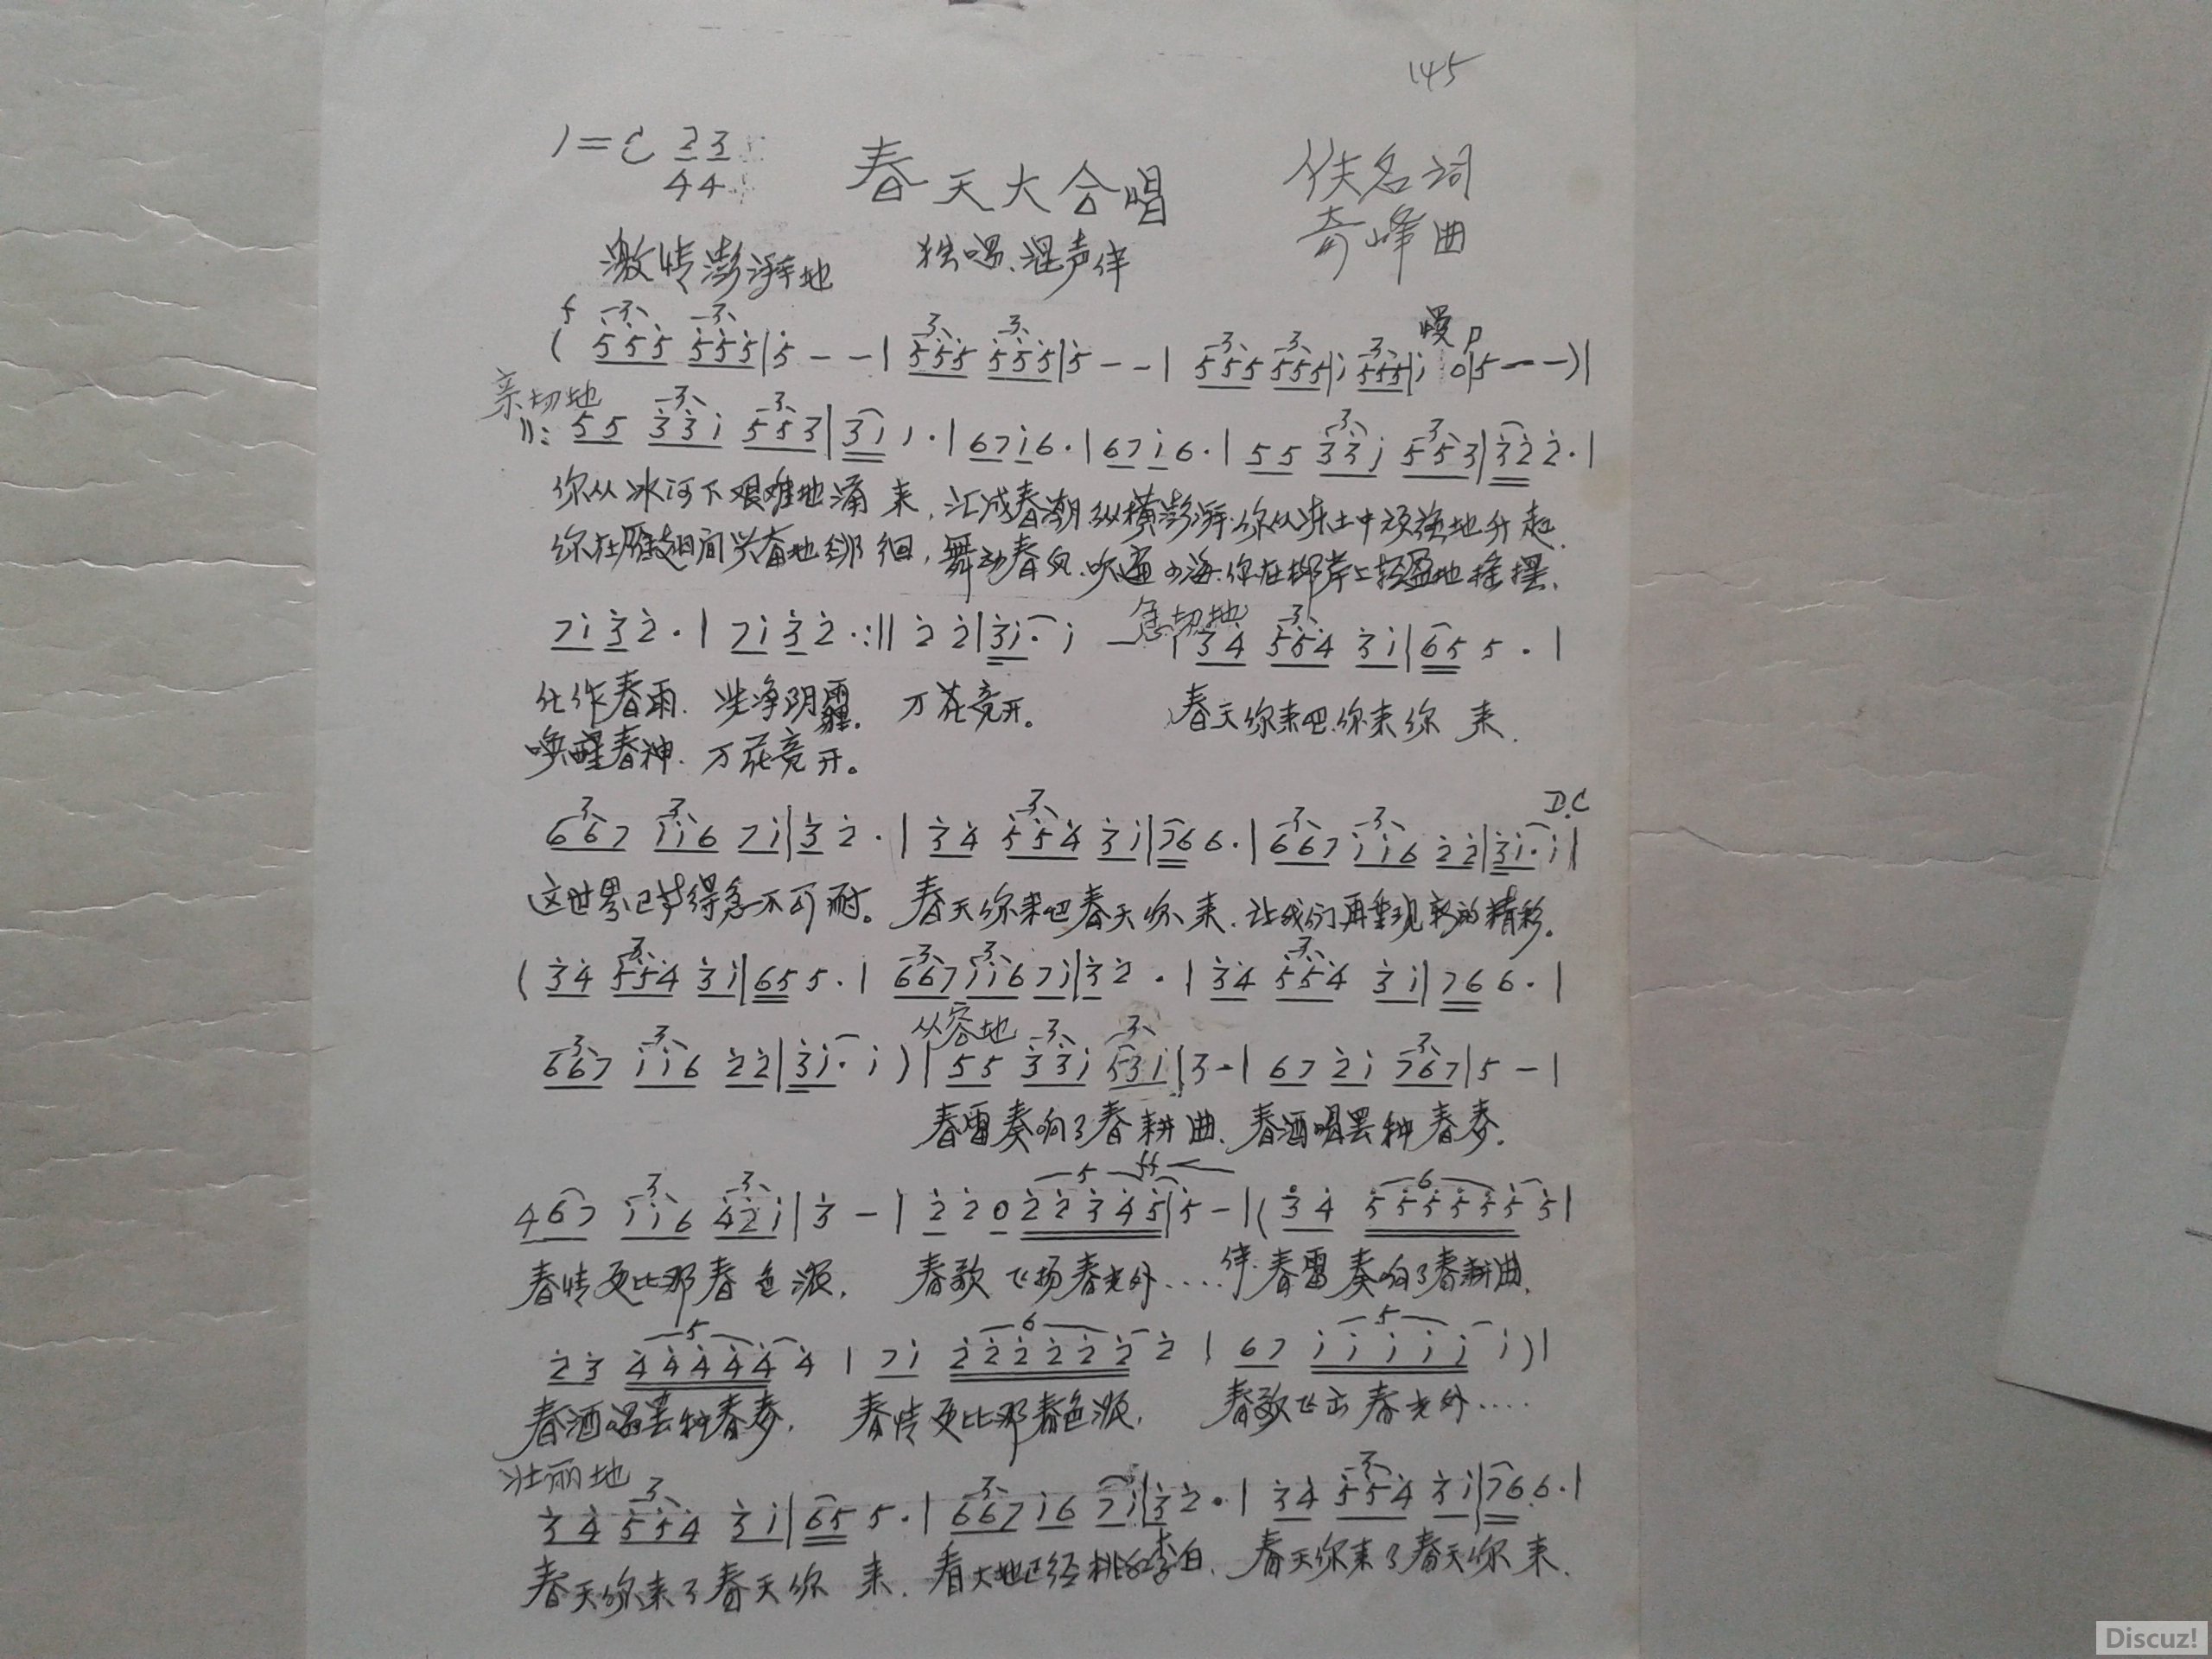 145
1=C 2 3
4 4
春天大合唱
佚名词
奇峰曲
激情澎湃地
独唱、混声伴
f 慢 p
( 555 555|5 - -| 555 555|5 - -| 555 555|i 555|i 0|5 - - -)|
亲切地
||: 55 33i 553|3i i·|67i6·|67i6·|55 33i 553|32 2·|
你从冰河下艰难地涌来,汇成春潮纵横澎湃.你从冻土中顽强地升起.
你在雁翅间兴奋地徘徊,舞动春风.吹遍山海.你在柳岸上轻盈地摇摆、
急切地
7i 32·|7i 32·:|| 2 2|3i· i - |34 554 3i|65 5·|
化作春雨.洗净阴霾.万花竞开。春天你来吧.你来你来.
唤醒春神.万花竞开。
D.C
667 ii6 7i|3 2·|34 554 3i|76 6·|667 ii6 22|3i· i|
这世界已等得急不可耐。春天你来吧春天你来.让我们再重现新的精彩。
(34 554 3i|65 5·|667 ii6 7i|3 2·|34 554 3i|76 6·|
从容地
667 ii6 22|3i· i)|55 33i 53i|3 -|67 2i 767|5 -|
春雷奏响了春耕曲、春酒唱罢种春梦.
5 ff
467 ii6 42i|3 -|2 2 0 22345|5 -|(34 555555 5|
春情更比那春色浓.春歌飞扬春光外....伴.春雷奏响了春耕曲.
23 44444 4|7i 222222 2|67 iiiii i)|
春酒唱罢种春梦.春情更比那春色浓.春歌飞出春光外....
壮丽地
34 554 3i|65 5·|667 i6 7i|3 2·|34 554 3i|76 6·|
春天你来了春天你来.看大地已经桃红李白.春天你来了春天你来.
Discuz!